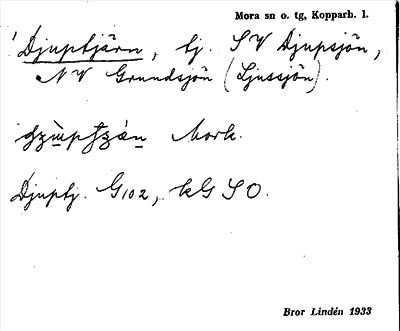 Mora sn o. tg, Kopparb. l.
Djuptjärn, tj. SV Djupsjön,
NV Grundsjön (Ljussjön).
Mork.
Djuptj. G102, kG SO.
Bror Lindén 1933